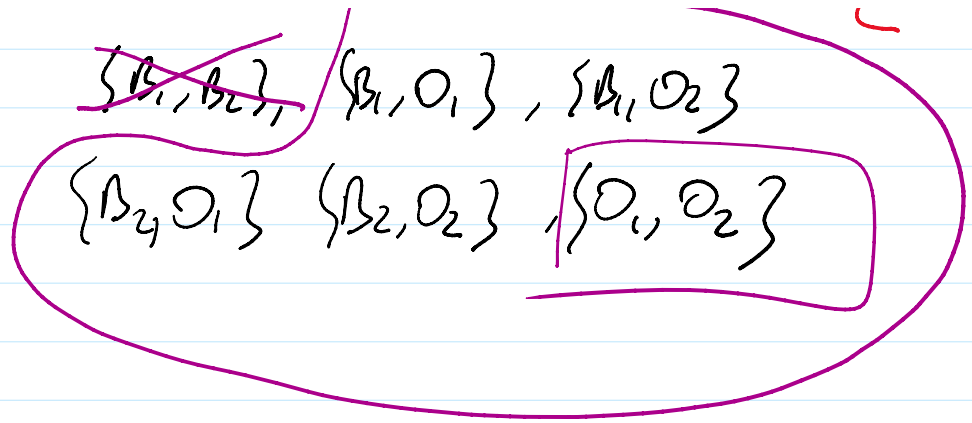 {B₁, B₂}, {B₁, O₁}, {B₁, O₂}
{B₂, O₁} {B₂, O₂}, {O₁, O₂}